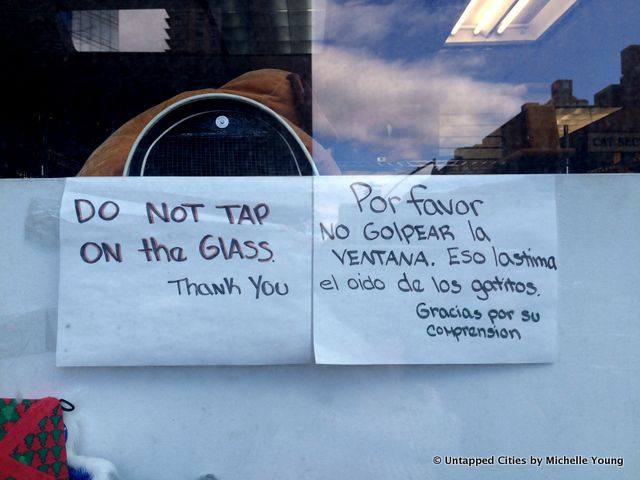 CAT SEC
DO NOT TAP
ON the GLASS.
Thank You
Por favor
NO GOLPEAR la
VENTANA. Eso lastima
el oido de los gatitos.
Gracias por su
comprension
© Untapped Cities by Michelle Young